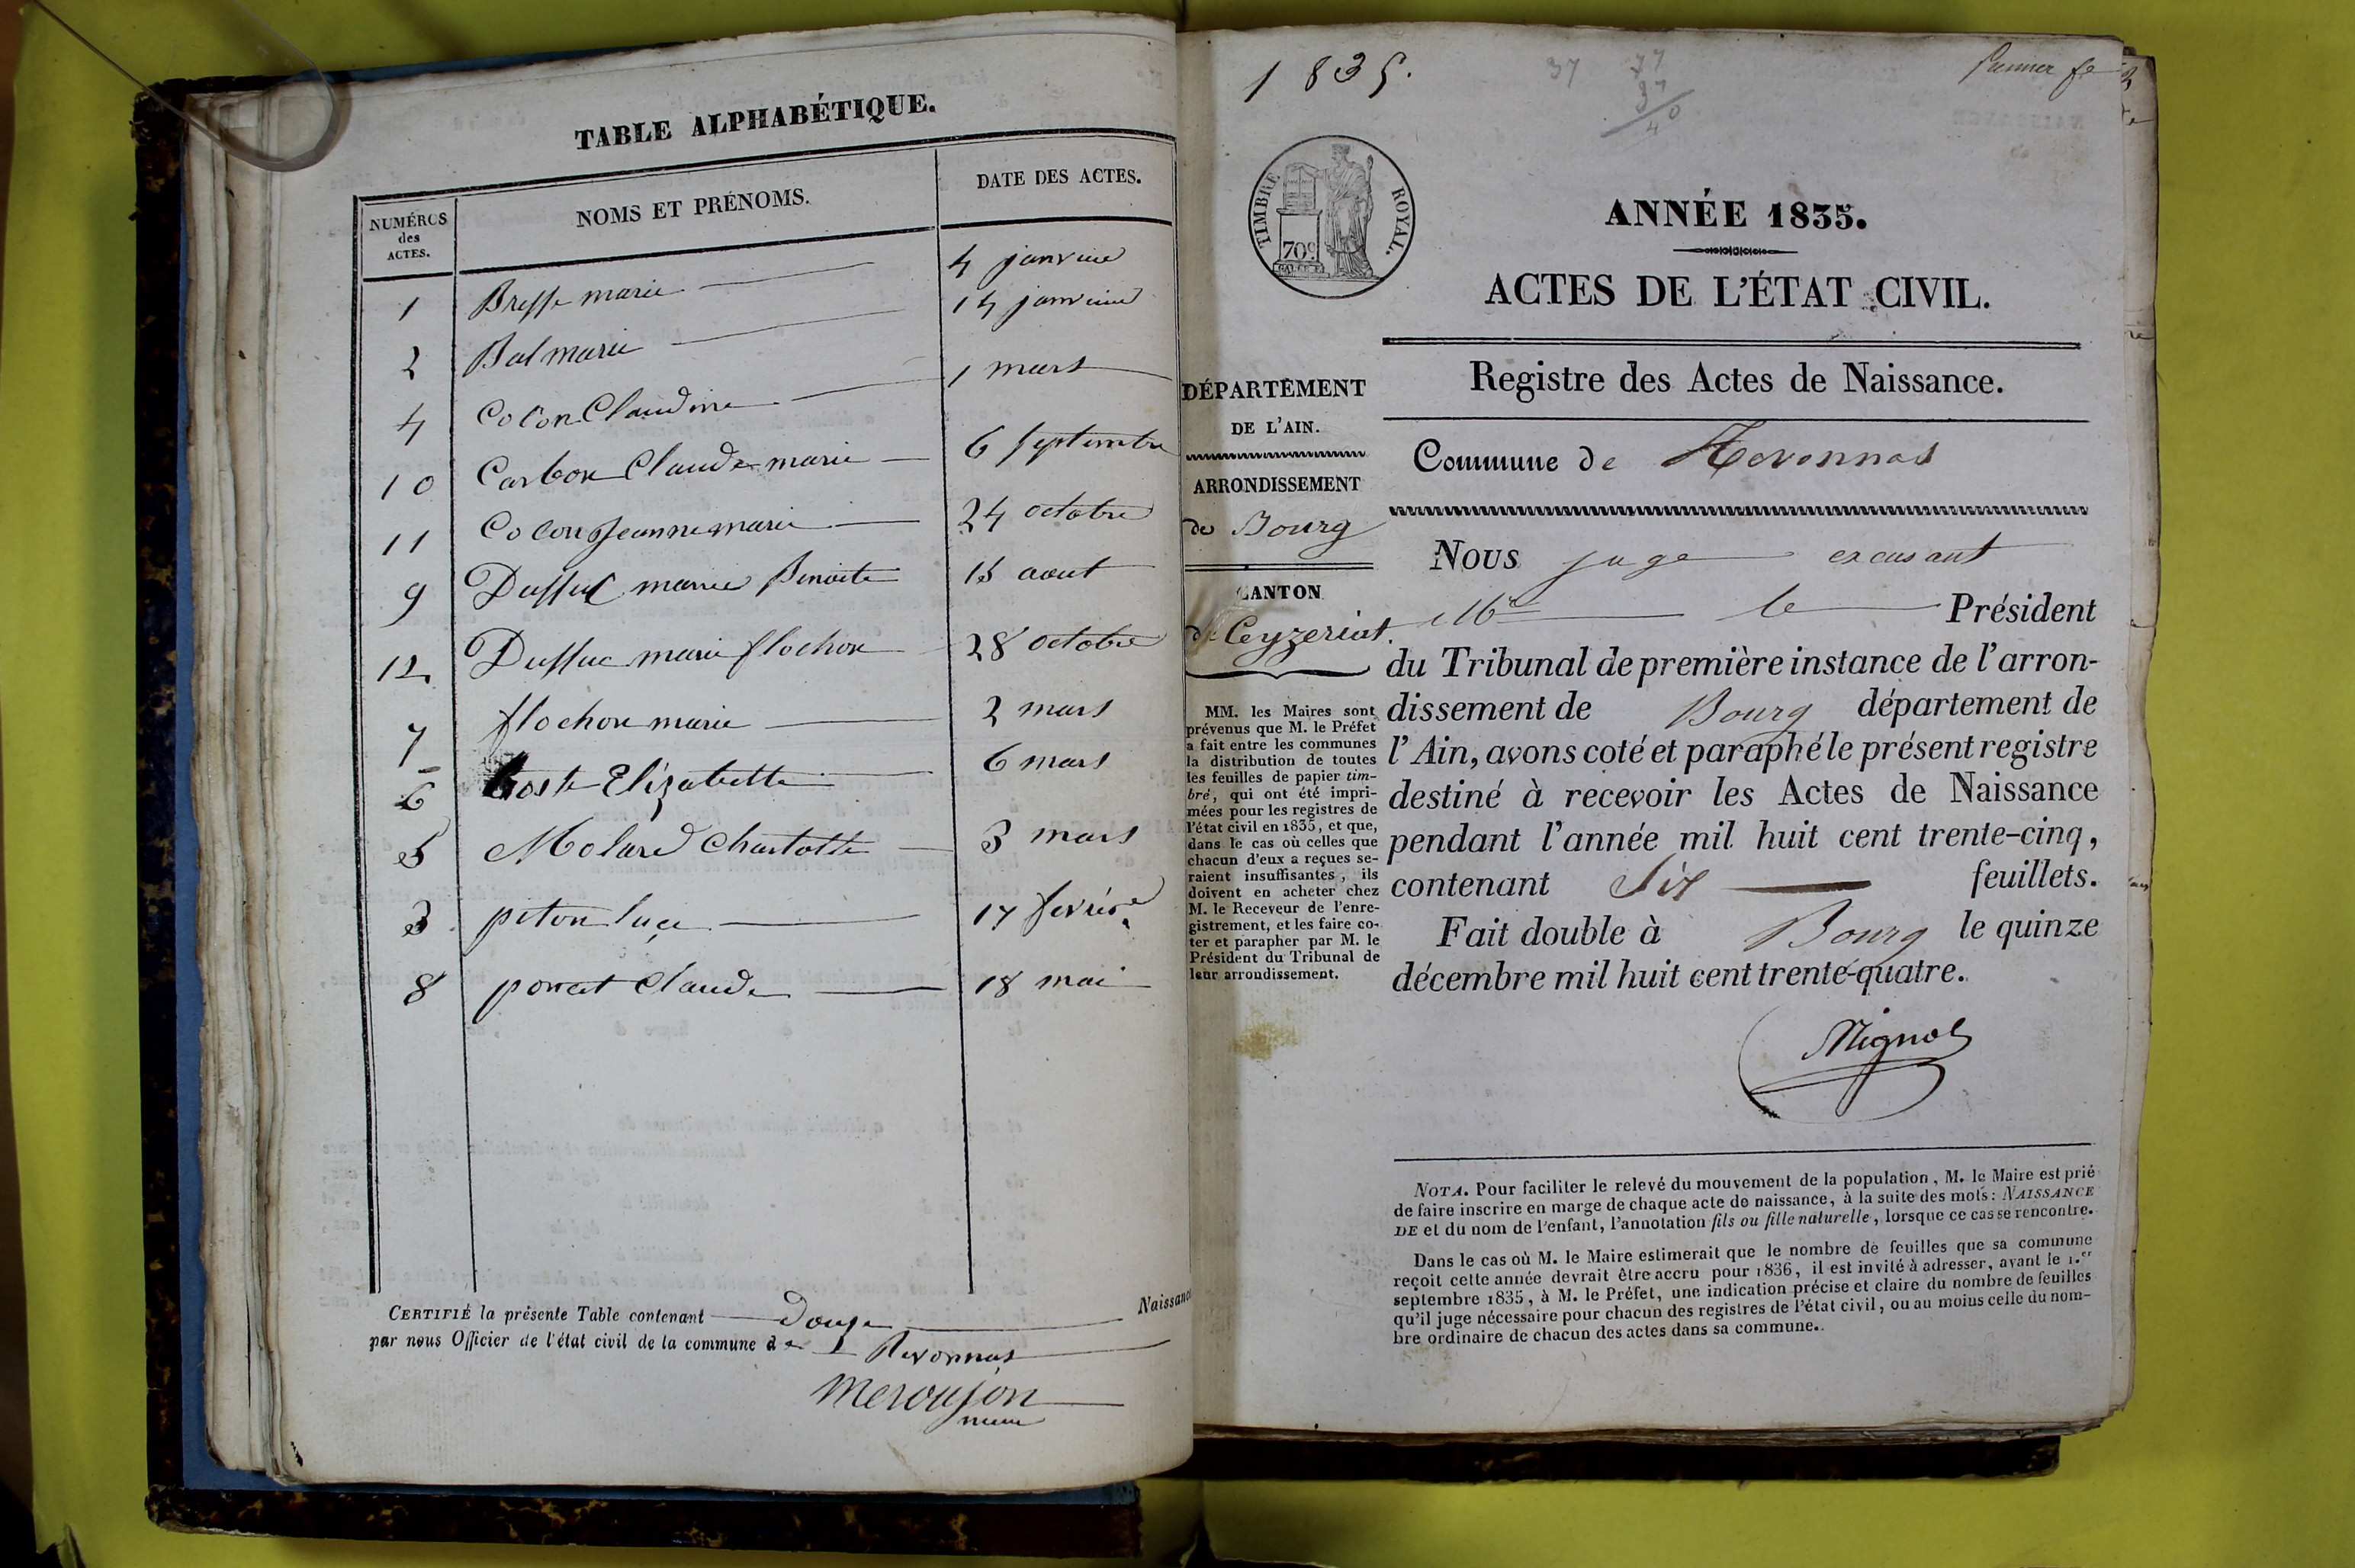 TABLE ALPHABÉTIQUE.
NUMÉROS des ACTES. NOMS ET PRÉNOMS. DATE DES ACTES.
1 Bresse marie 4 janvier
2 Bal marie 14 janvier
4 Colon Claudine 1 mars
10 Carbon Claude marie 6 septembre
11 Colon Jeanne marie 24 octobre
9 Duffuc marie Benoite 15 aout
12 Duffuc marie flochon 28 octobre
7 flochon marie 2 mars
6 Elizabette 6 mars
5 Molard Charlotte 3 mars
3 piton luce 17 fevrier
8 porcet Claude 18 mai
CERTIFIÉ la présente Table contenant douze Naissance
par nous Officier de l'état civil de la commune de Revonnas
merouson
maire
1835.
37 77
37
40
Premier fe
TIMBRE ROYAL.
70c
ANNÉE 1835.
ACTES DE L'ÉTAT CIVIL.
Registre des Actes de Naissance.
DÉPARTEMENT
DE L'AIN.
ARRONDISSEMENT
de Bourg
CANTON
de Ceyzeriat.
MM. les Maires sont
prévenus que M. le Préfet
a fait entre les communes
la distribution de toutes
les feuilles de papier tim-
bré, qui ont été impri-
mées pour les registres de
l'état civil en 1835, et que,
dans le cas où celles que
chacun d'eux a reçues se-
raient insuffisantes, ils
doivent en acheter chez
M. le Receveur de l'enre-
gistrement, et les faire co-
ter et parapher par M. le
Président du Tribunal de
leur arrondissement.
Commune de Revonnas
NOUS juge excusant
Mr le Président
du Tribunal de première instance de l'arron-
dissement de Bourg département de
l'Ain, avons coté et paraphé le présent registre
destiné à recevoir les Actes de Naissance
pendant l'année mil huit cent trente-cinq,
contenant Six feuillets.
Fait double à Bourg le quinze
décembre mil huit cent trente-quatre.
Mignot
NOTA. Pour faciliter le relevé du mouvement de la population, M. le Maire est prié
de faire inscrire en marge de chaque acte de naissance, à la suite des mots: NAISSANCE
DE et du nom de l'enfant, l'annotation fils ou fille naturelle, lorsque ce cas se rencontre.
Dans le cas où M. le Maire estimerait que le nombre de feuilles que sa commune
reçoit cette année devrait être accru pour 1836, il est invité à adresser, avant le 1.er
septembre 1835, à M. le Préfet, une indication précise et claire du nombre de feuilles
qu'il juge nécessaire pour chacun des registres de l'état civil, ou au moins celle du nom-
bre ordinaire de chacun des actes dans sa commune.